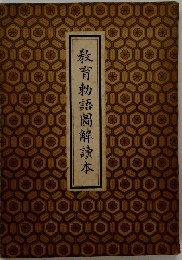 教育勅語圖解讀本